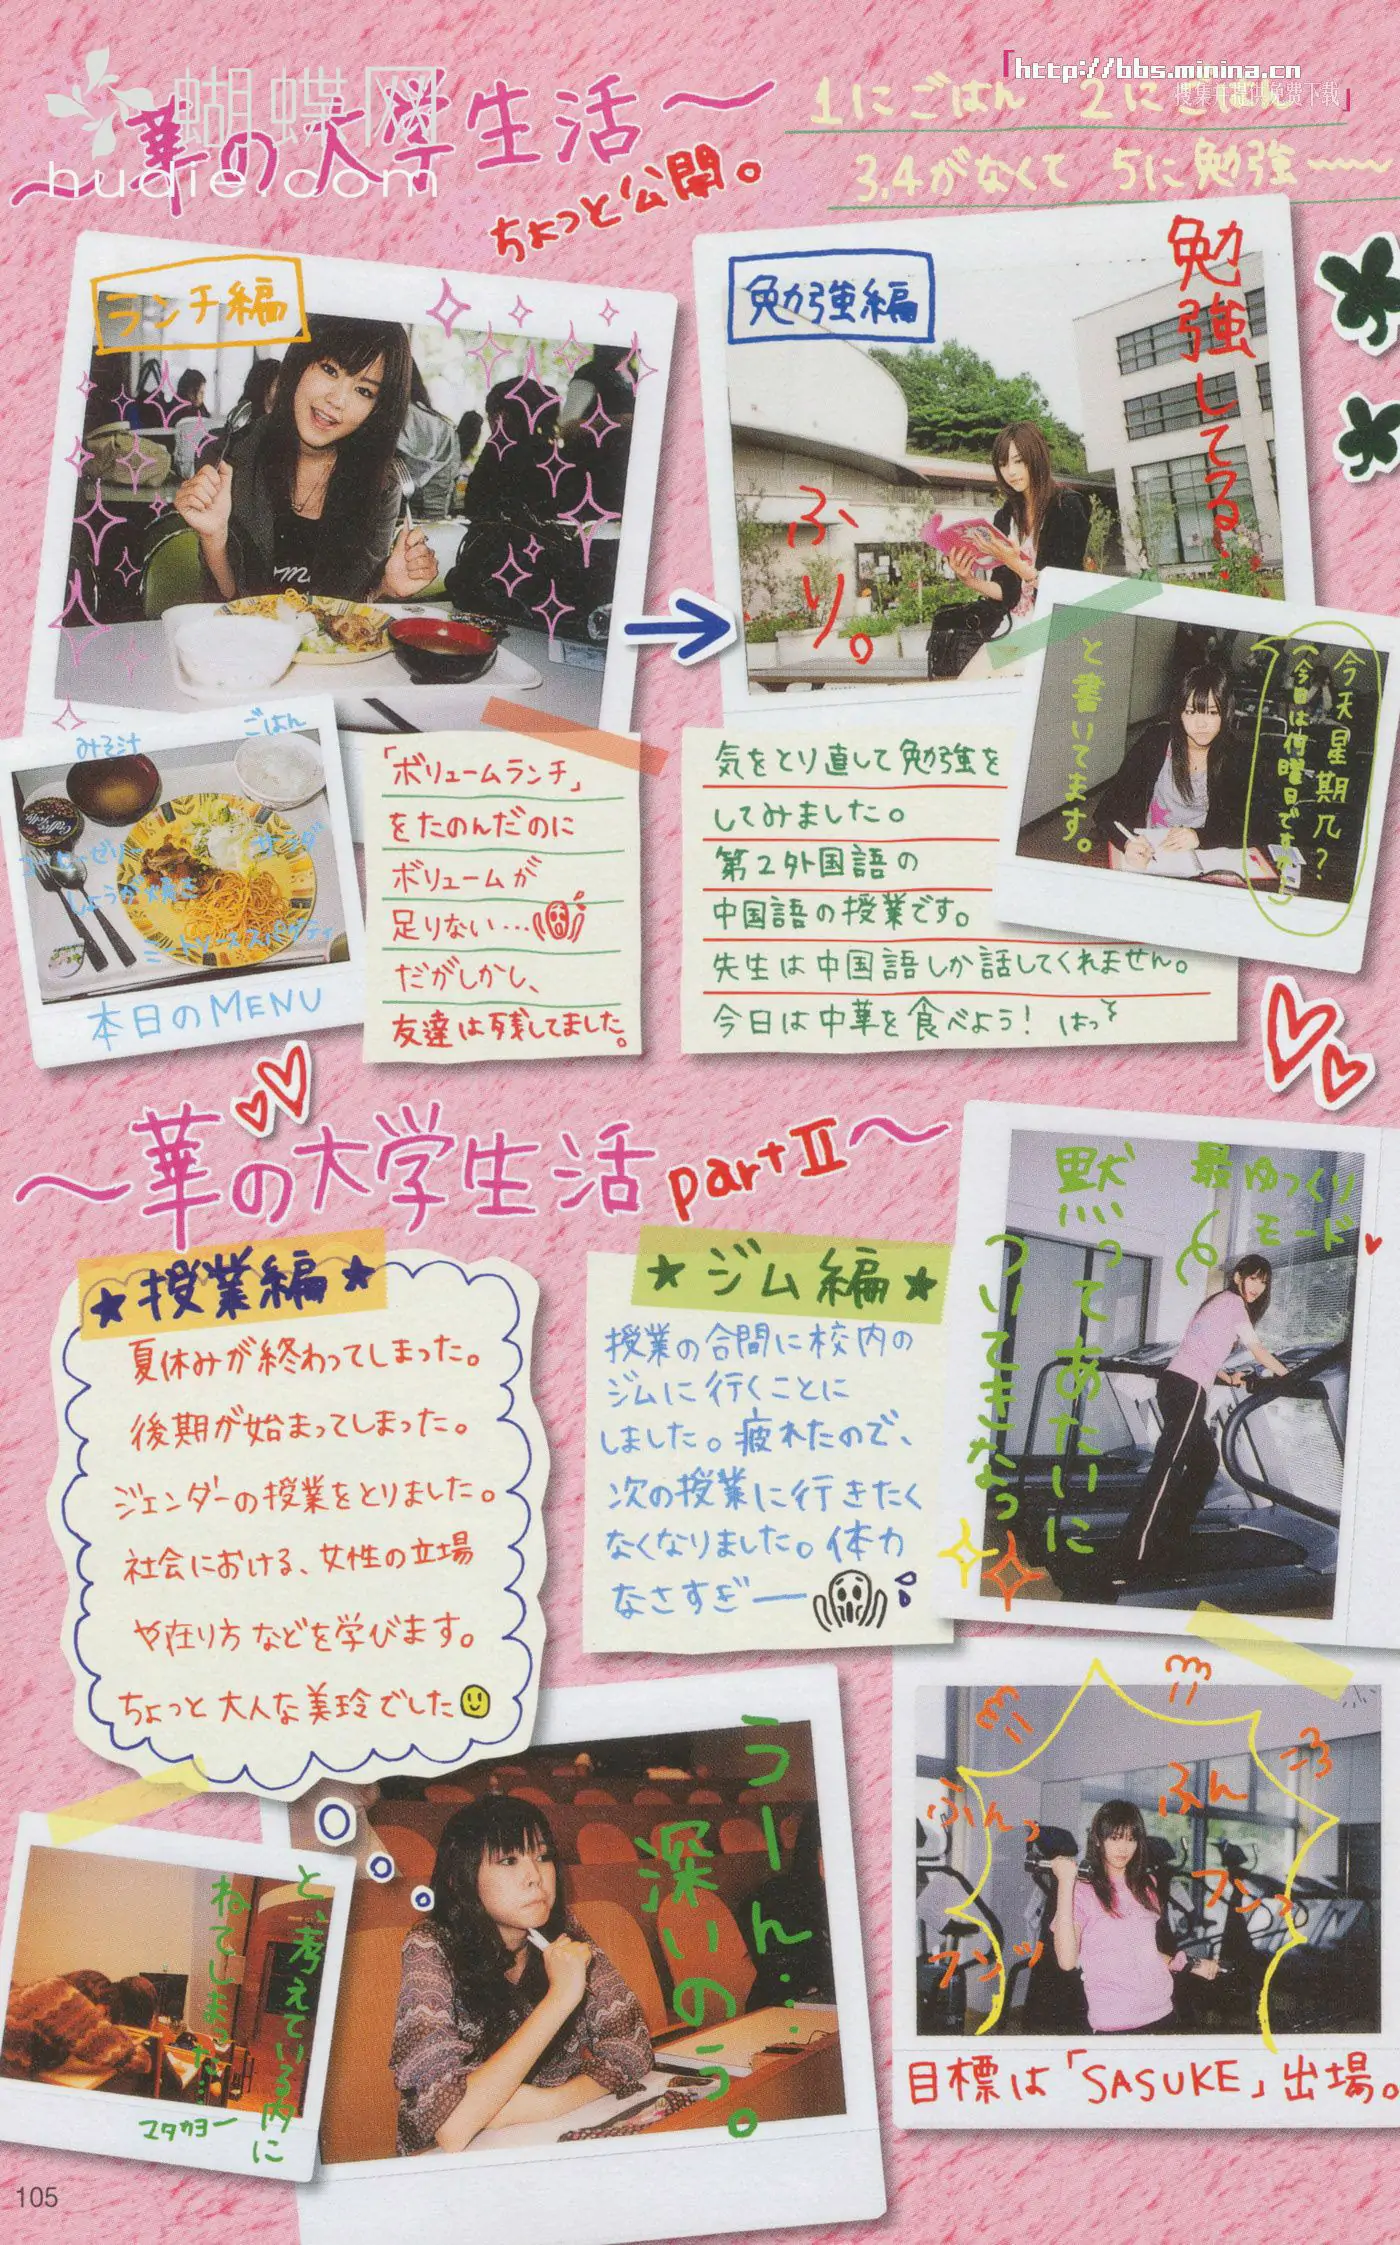 蝴蝶网
hudie.com
http://bbs.minina.cn
搜集并提供免费下载
～華の大学生活～
ちょっと公開。
「1にごはん 2にごはん」
3,4がなくて 5に勉強〜
ランチ編
勉強編
勉強してる…
ふり。
ごはん
みそ汁
サラダ
コーヒーゼリー
しょうが焼き
ミートソーススパゲティ
本日のMENU
「ボリュームランチ」
をたのんだのに
ボリュームが
足りない…
だがしかし、
友達は残してました。
今天星期几?
(今日は何曜日ですか)
と書いてます。
気をとり直して勉強を
してみました。
第2外国語の
中国語の授業です。
先生は中国語しか話してくれません。
今日は中華を食べよう! はっ
～華の大学生活 part II～
★授業編★
夏休みが終わってしまった。
後期が始まってしまった。
ジェンダーの授業をとりました。
社会における、女性の立場
や在り方などを学びます。
ちょっと大人な美玲でした
★ジム編★
授業の合間に校内の
ジムに行くことに
しました。疲れたので、
次の授業に行きたく
なくなりました。体力
なさすぎー
最ゆっくり
モード
黙ってあたいに
ついてきなっ
うーん…
深いのう。
と、考えている内に
ねてしまった…
マタカヨー
ふんっ
ふん
フンっ
フンッ
目標は「SASUKE」出場。
105